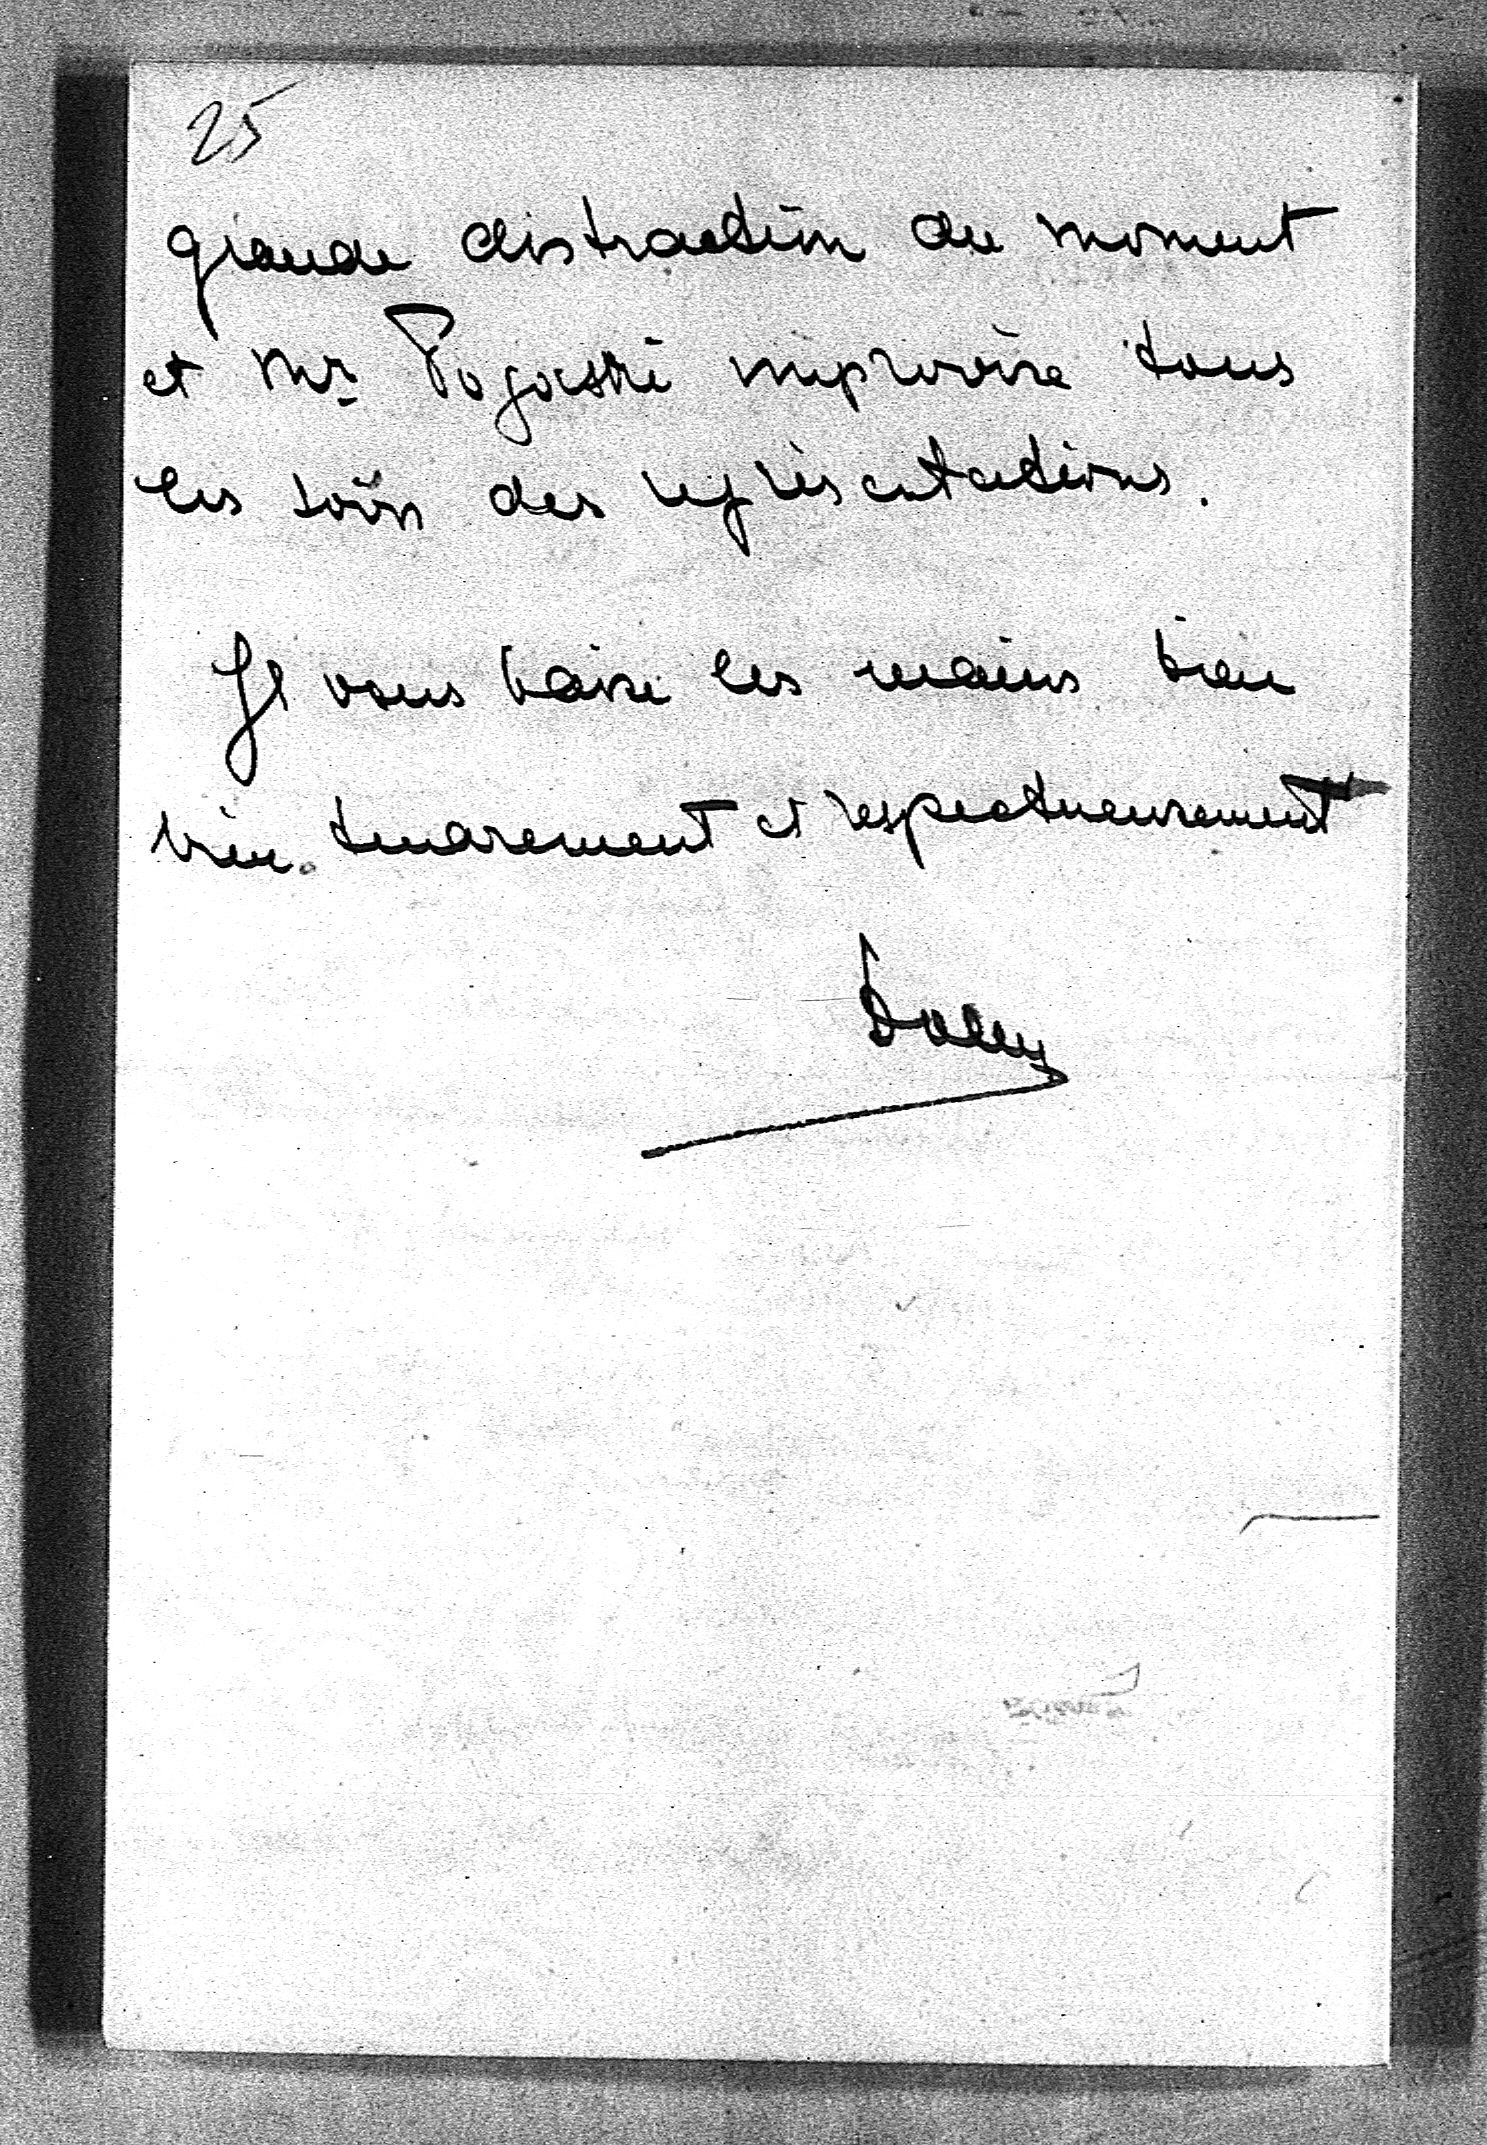 25
grande distraction du moment
et Mr improvise tous
les soirs des représentations.
Je vous baise les mains bien
bien tendrement et respectueusement
Dolly